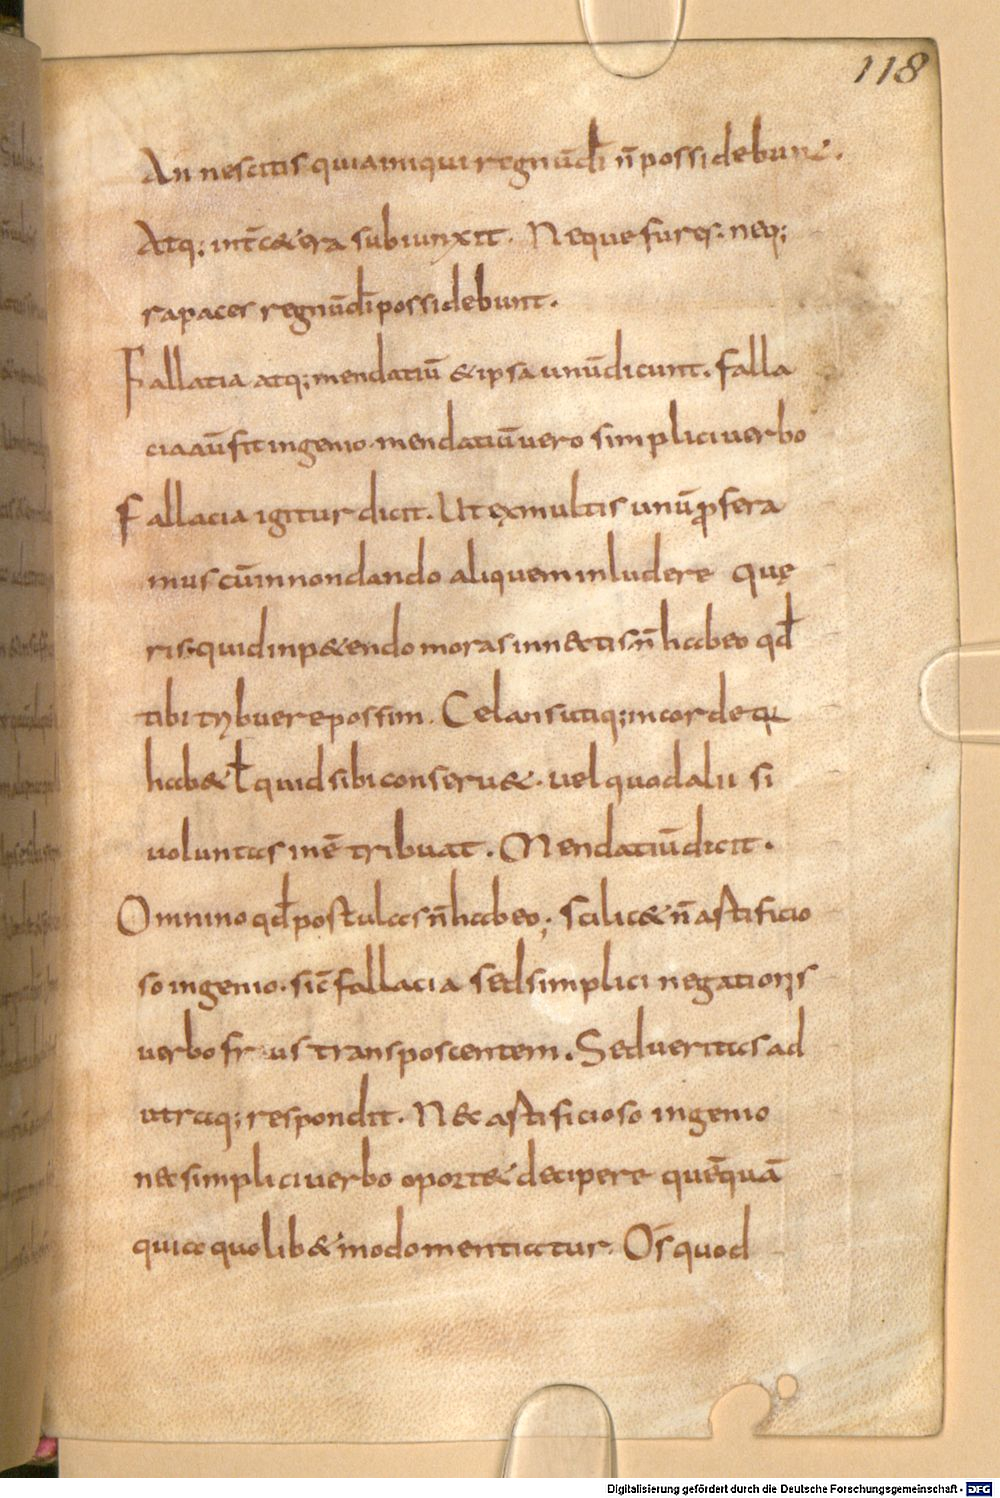 118
An nescitis quia iniqui regnū dī n̄ possidebunt.
Atq; int̄ c&era subiunxit. Neque fures. neq;
rapaces regnū dī possidebunt.
Fallatia atq; mendatiū & ipsa unū dicunt. falla
cia aū fit ingenio. mendatiū vero simplici verbo
Fallacia igitur dicit. Ut ex multis unū ꝓfera
mus cū in non dando aliquem inludere quę
ris. quid inp&endo moras innectis. n̄ habeo qđ
tibi trybuere possim. Celans utiq; in corde q
hab& ł quid sibi conseru&. vel quod alii si
voluntas inē tribuat. Mendatiū dicit.
Omnino qđ postulas n̄ habeo; Scilic& n̄ astificio
so ingenio. sic̄ fallacia sed simplici negationis
verbo frus trans poscentem. Sed veritas ad
utraq; respondit. Nec astificioso ingenio
nec simplici verbo oport& decipere quēquā
quia quolib& modo mentiatur. Os quod
Digitalisierung gefördert durch die Deutsche Forschungsgemeinschaft - DFG